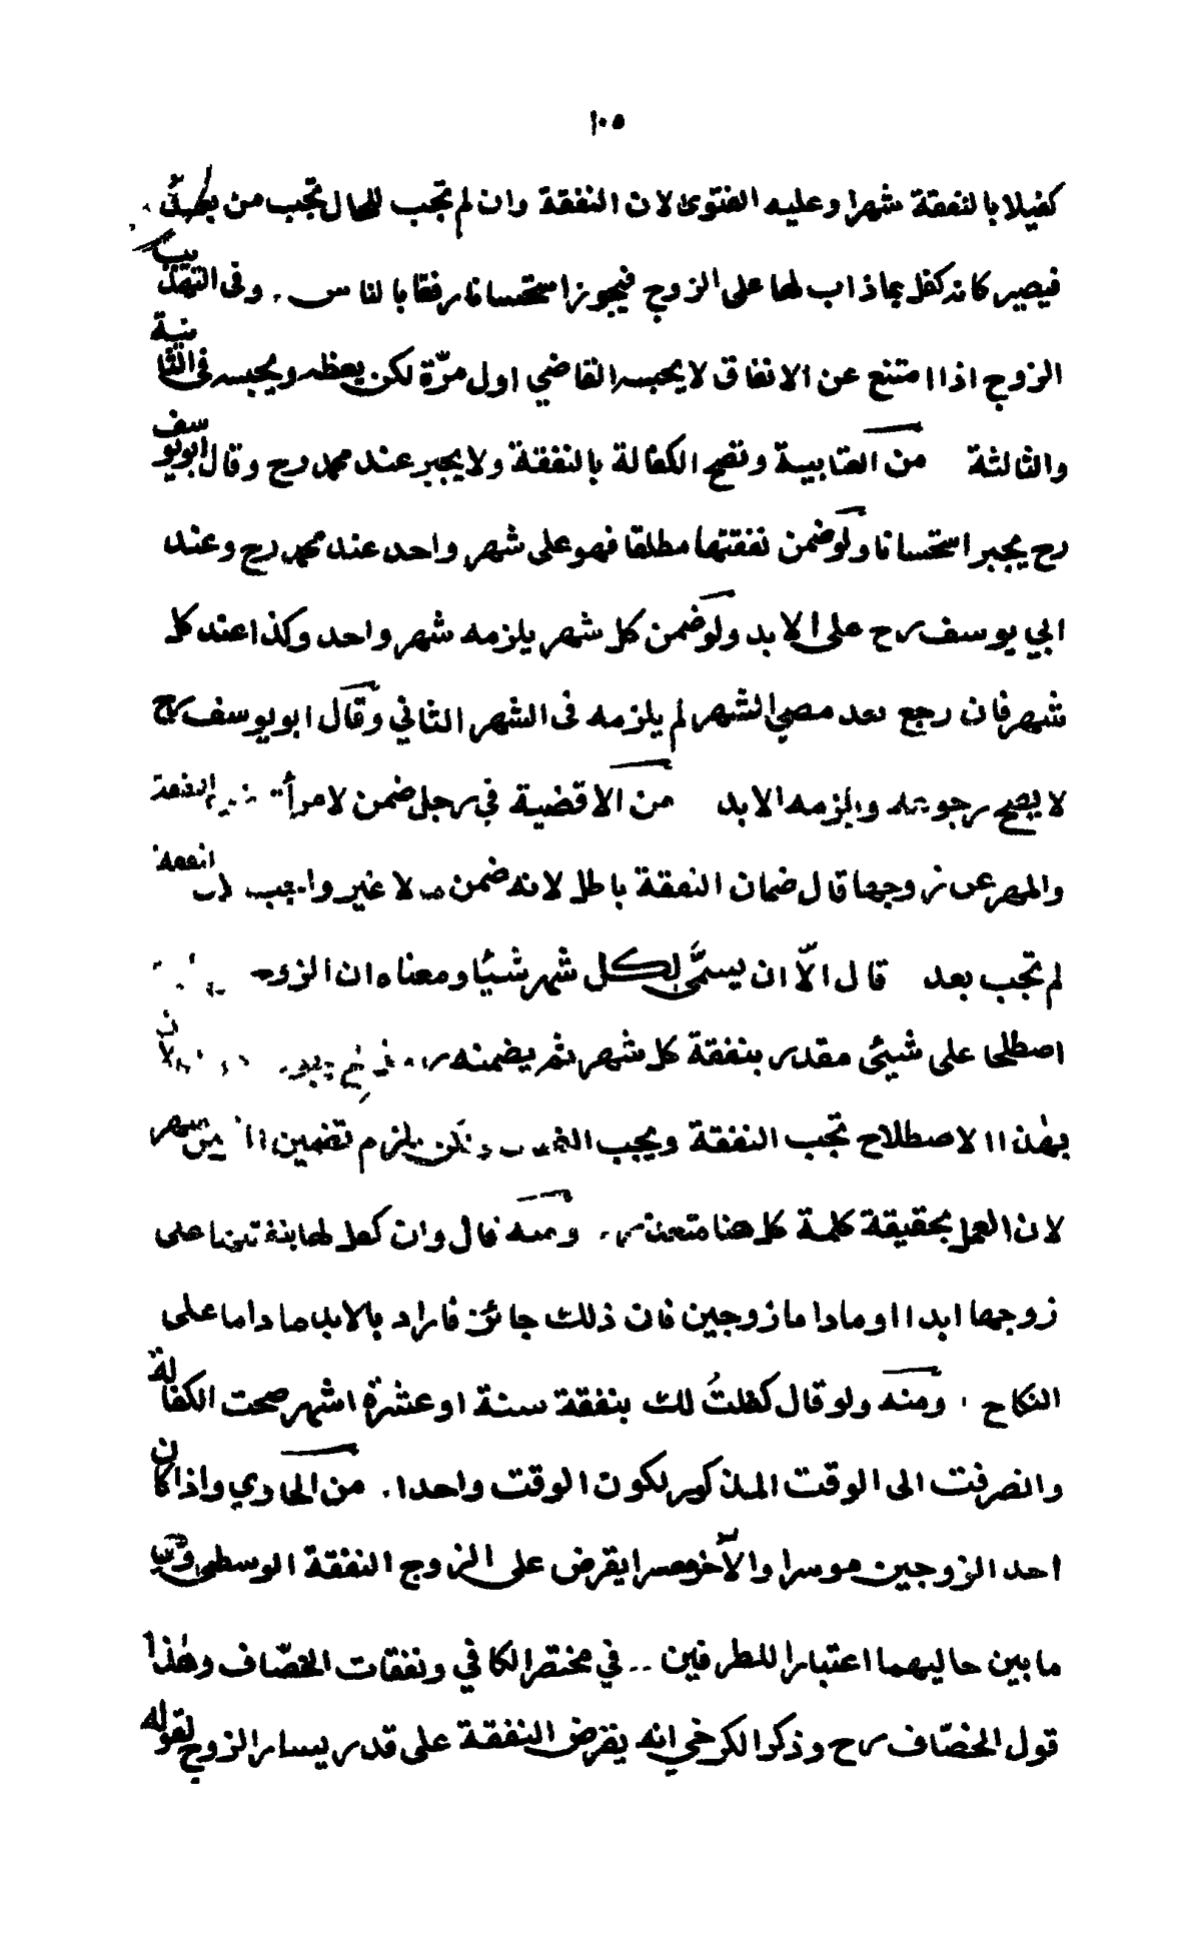 ١٠٥
كفيلا بالنفقة شهرا وعليه الفتوى لان النفقة وان لم تجب للحال تجب من بعد
فيصير كانه كفل بماذاب لها على الزوج فيجوز استحسانا رفقا بالناس . وفى التهذيب
الزوج اذا امتنع عن الانفاق لا يحبسه القاضي اول مرّة لكن يعظه ويحبسه فى الثانية
والثالثة من العتابية وتصح الكفالة بالنفقة ولا يجبر عند محمد رح وقال ابو يوسف
رح يجبر استحسانا ولو ضمن نفقتها مطلقا فهو على شهر واحد عند محمد رح وعند
ابي يوسف رح على الابد ولو ضمن كل شهر يلزمه شهر واحد وكذا عند كل
شهر فان رجع بعد مضي الشهر لم يلزمه فى الشهر الثاني وقال ابو يوسف رح
لا يصح رجوعه ويلزمه الابد من الاقضية في رجل ضمن لامرأة النفقة
والمهر عن زوجها قال ضمان النفقة باطل لانه ضمن ما لا غير واجب لان النفقة
لم تجب بعد قال الاّ ان يسمّى لكل شهر شيئا ومعناه ان الزوج
اصطلحا على شيئى مقدر بنفقة كل شهر ثم يضمنه لان
بهذا الاصطلاح تجب النفقة ويجب ولكن يلزم تضمين شهر
لان العمل بحقيقة كلمة كل هنا متعذر . ومنه قال وان كفل لها بنفقتها على
زوجها ابدا اوماداما زوجين فان ذلك جائز فاراد بالابد ماداما على
النكاح . ومنه ولو قال كفلتُ لك بنفقة سنة او عشرة اشهر صحت الكفالة
وانصرفت الى الوقت المذكور لكون الوقت واحدا . من الحاوي واذا كان
احد الزوجين موسرا والآخر معسرا يفرض على الزوج النفقة الوسطى
ما بين حاليهما اعتبارا للطرفين .. في مختصر الكافي ونفقات الخصّاف وهذا
قول الخصّاف رح وذكر الكرخي انه يفرض النفقة على قدر يسار الزوج لقوله